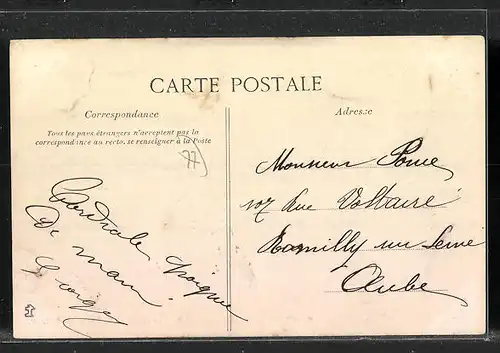 CARTE POSTALE
Correspondance
Tous les pays étrangers n'acceptent pas la
correspondance au recto, se renseigner à la Poste
77
Cordiale Poignée
De main
Georges
Adresse
Monsieur
107 Rue Voltaire
Romilly sur Seine
Aube